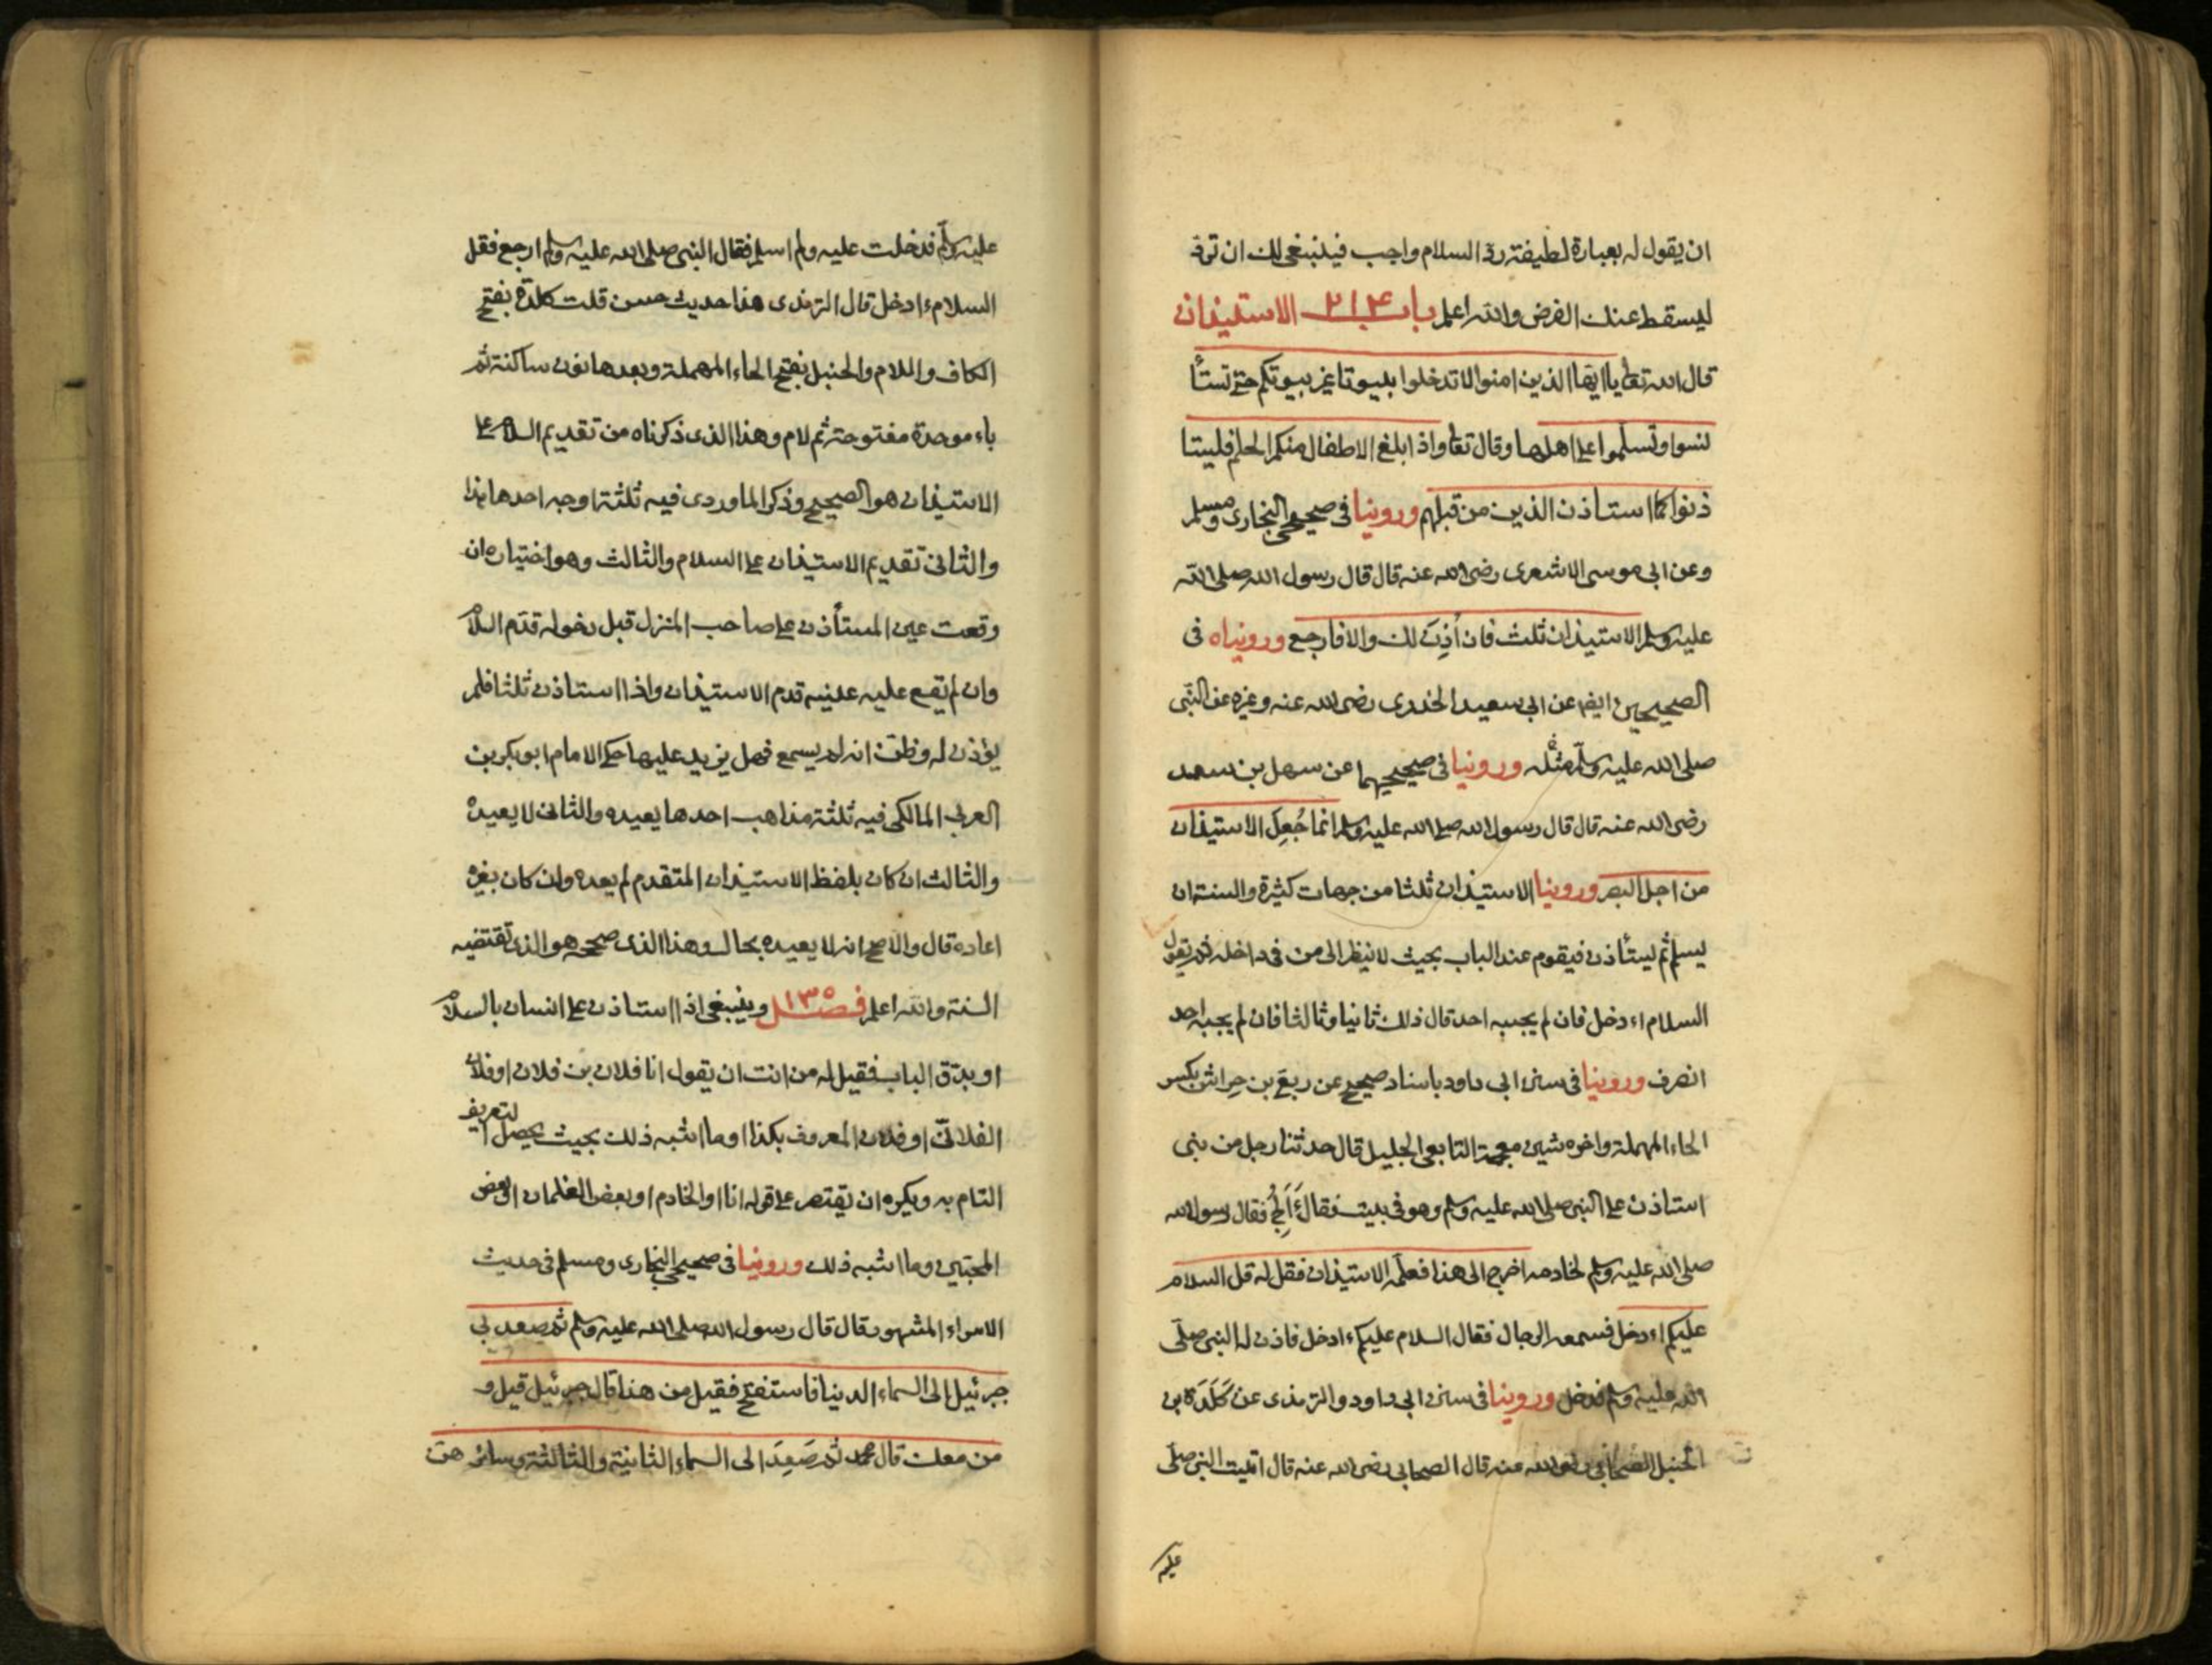 ان يقول له بعبارة لطيفة رد السلام واجب فينبغى لك ان ترد
ليسقط عنك الفرض والله اعلم باب ٢١٤ الاستيذان
قال الله تعالى يا ايها الذين امنوا لا تدخلوا بيوتا غير بيوتكم حتى تستأ
نسوا وتسلموا على اهلها وقال تعالى واذا بلغ الاطفال منكم الحلم فليستا
ذنوا كما استاذن الذين من قبلهم وروينا فى صحيحى البخارى ومسلم
وعن ابى موسى الاشعرى رضى الله عنه قال قال رسول الله صلى الله
عليه وسلم الاستيذان ثلث فان أُذِنَ لك والا فارجع ورويناه فى
الصحيحين ايضا عن ابى سعيد الخدرى رضى الله عنه وغيره عن النبى
صلى الله عليه وسلم مثله وروينا فى صحيحيهما عن سهل بن سعد
رضى الله عنه قال قال رسول الله صلى الله عليه وسلم انما جُعِل الاستيذان
من اجل البصر وروينا الاستيذان ثلثا من جهات كثيرة والسنة ان
يسلم ثم يستأذن فيقوم عند الباب بحيث لا ينظر الى من فى داخله ثم يقول
السلام ءادخل فان لم يجبه احد قال ذلك ثانيا وثالثا فان لم يجبه احد
انصرف وروينا فى سنن ابى داود باسناد صحيح عن ربعى بن حِراش بكسر
الحاء المهملة واخره شين معجمة التابعى الجليل قال حدثنا رجل من بنى
استاذن على النبى صلى الله عليه وسلم وهو فى بيت فقال ءَأَلِجُ فقال رسول الله
صلى الله عليه وسلم لخادمه اخرج الى هذا فعلمه الاستيذان فقل له قل السلام
عليكم ءادخل فسمعه الرجال فقال السلام عليكم ءادخل فاذن له النبى صلى
الله عليه وسلم فدخل وروينا فى سنن ابى داود والترمذى عن كَلَدَة بن
الحنبل الصحابى رضى الله عنه قال الصحابى رضى الله عنه قال اتيت النبى صلى
عليه
عليه وسلم فدخلت عليه ولم اسلم فقال النبى صلى الله عليه وسلم ارجع فقل
السلام ءادخل قال الترمذى هذا حديث حسن قلت كلدة بفتح
الكاف واللام والحنبل بفتح الحاء المهملة وبعدها نون ساكنة ثم
باء موحدة مفتوحة ثم لام وهذا الذى ذكرناه من تقديم السلام على
الاستيذان هو الصحيح وذكر الماوردى فيه ثلثة اوجه احدها هذا
والثانى تقديم الاستيذان على السلام والثالث وهو اختياره ان
وقعت عين المستأذن على صاحب المنزل قبل دخوله قدم السلام
وان لم يقع عليه عينه قدم الاستيذان واذا استاذن ثلثا فلم
يؤذن له وظن انه لم يسمع فهل يزيد عليها حكى الامام ابو بكر بن
العربى المالكى فيه ثلثة مذاهب احدها يعيده والثانى لا يعيده
والثالث ان كان بلفظ الاستيذان المتقدم لم يعده وان كان بغيره
اعاده قال والاصح انه لا يعيده بحال وهذا الذى صححه هو الذى تقتضيه
السنة والله اعلم فصل ١٣٥ وينبغى اذا استاذن على انسان بالسلام
او بدق الباب فقيل له من انت ان يقول انا فلان بن فلان او فلان
الفلانى او فلان المعروف بكذا او ما اشبه ذلك بحيث يحصل التعريف
التام به ويكره ان يقتصر على قوله انا او الخادم او بعض الغلمان او بعض
المحبين وما اشبه ذلك وروينا فى صحيحى البخارى ومسلم فى حديث
الاسراء المشهور قال قال رسول الله صلى الله عليه وسلم ثم صعد بى
جبرئيل الى السماء الدنيا فاستفتح فقيل من هذا قال جبرئيل قيل و
من معك قال محمد ثم صَعِدَ الى السماء الثانية والثالثة وسائرهن